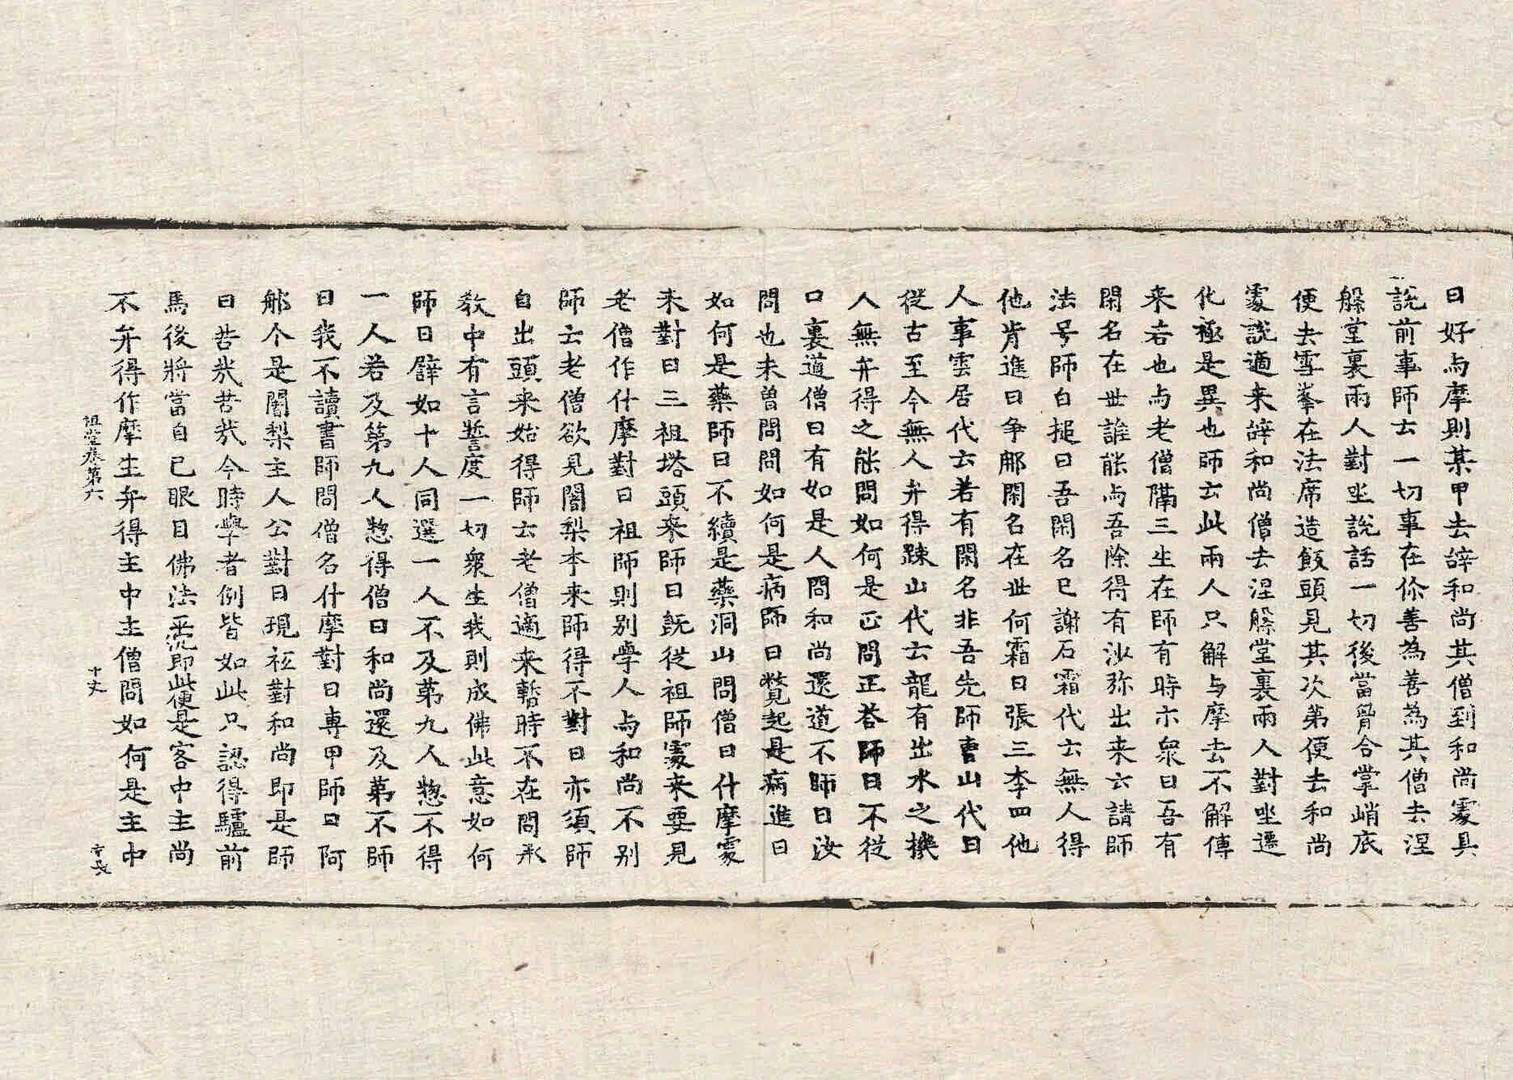 曰好与摩則某甲去辞和尚其僧到和尚處具
說前事師云一切事在你善為善為其僧去涅
槃堂裏兩人對坐說話一切後當骨合掌峭底
便去雪峯在法席造飯頭見其次第便去和尚
處說適来辞和尚僧去涅槃堂裏兩人對坐遷
化極是異也師云此兩人只解与摩去不解傳
来若也与老僧隔三生在師有時示衆曰吾有
閑名在世誰能与吾除得有沙弥出来云請師
法号師白搥曰吾閑名已謝石霜代云無人得
他肯進曰争那閑名在世何霜曰張三李四他
人事雲居代云若有閑名非吾先師曹山代曰
従古至今無人弁得踈山代云龍有出水之機
人無弁得之能問如何是正問正荅師曰不従
口裏道僧曰有如是人問和尚還道不師曰汝
問也未曽問問如何是病師曰瞥起是病進曰
如何是藥師曰不續是藥洞山問僧曰什摩處
来對曰三祖塔頭来師曰既従祖師處来要見
老僧作什摩對曰祖師則别學人与和尚不别
師云老僧欲見闍梨本来師得不對曰亦須師
自出頭来始得師云老僧適来暫時不在問承
教中有言誓度一切衆生我則成佛此意如何
師曰譬如十人同選一人不及第九人惣不得
一人若及第九人惣得僧曰和尚還及第不師
曰我不讀書師問僧名什摩對曰専甲師曰阿
那个是闍梨主人公對曰現祗對和尚即是師
曰苦㢤苦㢤今時學者例皆如此只認得驢前
馬後將當自己眼目佛法平沉即此便是客中主尚
不弁得作摩生弁得主中主僧問如何是主中
祖堂卷第六 十丈